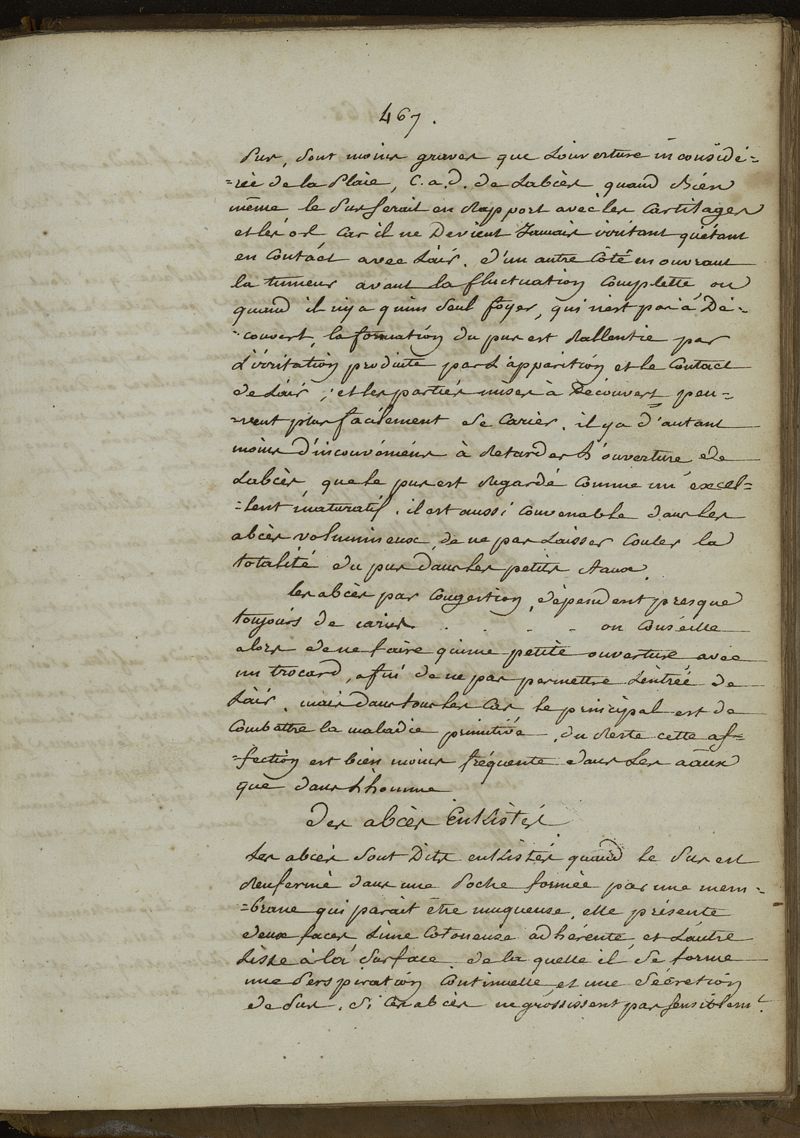 467.
Pus, sont moins graves que l'ouverture inconsidé-
-rée de la Plaie, C.a.d. de Labcès, quand Bién
même le Pus serait en Rapport avec les Cartilages
et les os. Car il ne Devient Jamais irritant qu'étant
en Contact avec L'air. d'un autre Côté en ouvrant
la tumeur avant la fluctuation Complette, ou
quand il n'y a qu'un seul foyer, qui n'est pas à Dé-
-couvert, la formation du pus est Rallentie par
L'irritation produite par L'apparition et le Contact
de L'air ; et les parties mises à Découvert peu-
-vent plus facilement se Carier. il y a d'autant
moins d'inconvénieus à Retarder L'ouverture de
Labcès, que le pus est Regardé Comme un excel-
-lent maturatif. il est aussi Convenable dans les
abcès volumineux, de ne pas Laisser Couler la
totalité du pus dans les petits Aaux.
les abcès par Congestion, dépendent presque
toujours de caries. . . . . on Conseille
alors de ne faire qu'une petite ouverture avec
un trocard, afin de ne pas permettre L'entrée de
L'air. mais dans tous les Cas le principal est de
Combattre la maladie primitive. du Reste cette af-
-fection est bien moins fréquente dans les aâux
que dans L'homme
Des abcès Enkistés
Les abcès sont Dits enkistés quand le Pus est
Renfermé dans une Poche formée par une mem-
-brane qui parait être muqueuse, elle présente
deux faces L'une Cotoneuse adhérente, et L'autre
Lisse à la surface de la quelle il se forme
une Perspiration Continuelle et une sécretion
de Pus. si Ces abcès ne grossissent pas sensiblemt.